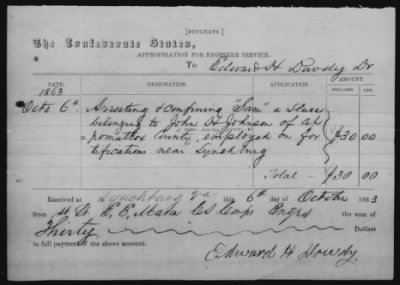 [DUPLICATE]
The Confederate States,
APPROPRIATION FOR ENGINEER SERVICE.
To Edward H Dowdy Dr
DATE. DESIGNATION. APPLICATION. AMOUNT
1863 DOLLARS CTS.
Octo 6th Arresting & confining "Sam" a Slave
belonging to John H Johnson of Ap
pomattox County, employed on for $30 00
tifications near Lynchburg
Total - $30 00
Received at Lynchburg Va this 6th day of October 1863
from 1st Lt E. E. CS Corps Engrs the sum of
Thirty Dollars
in full payment of the above account.
Edward H Dowdy.